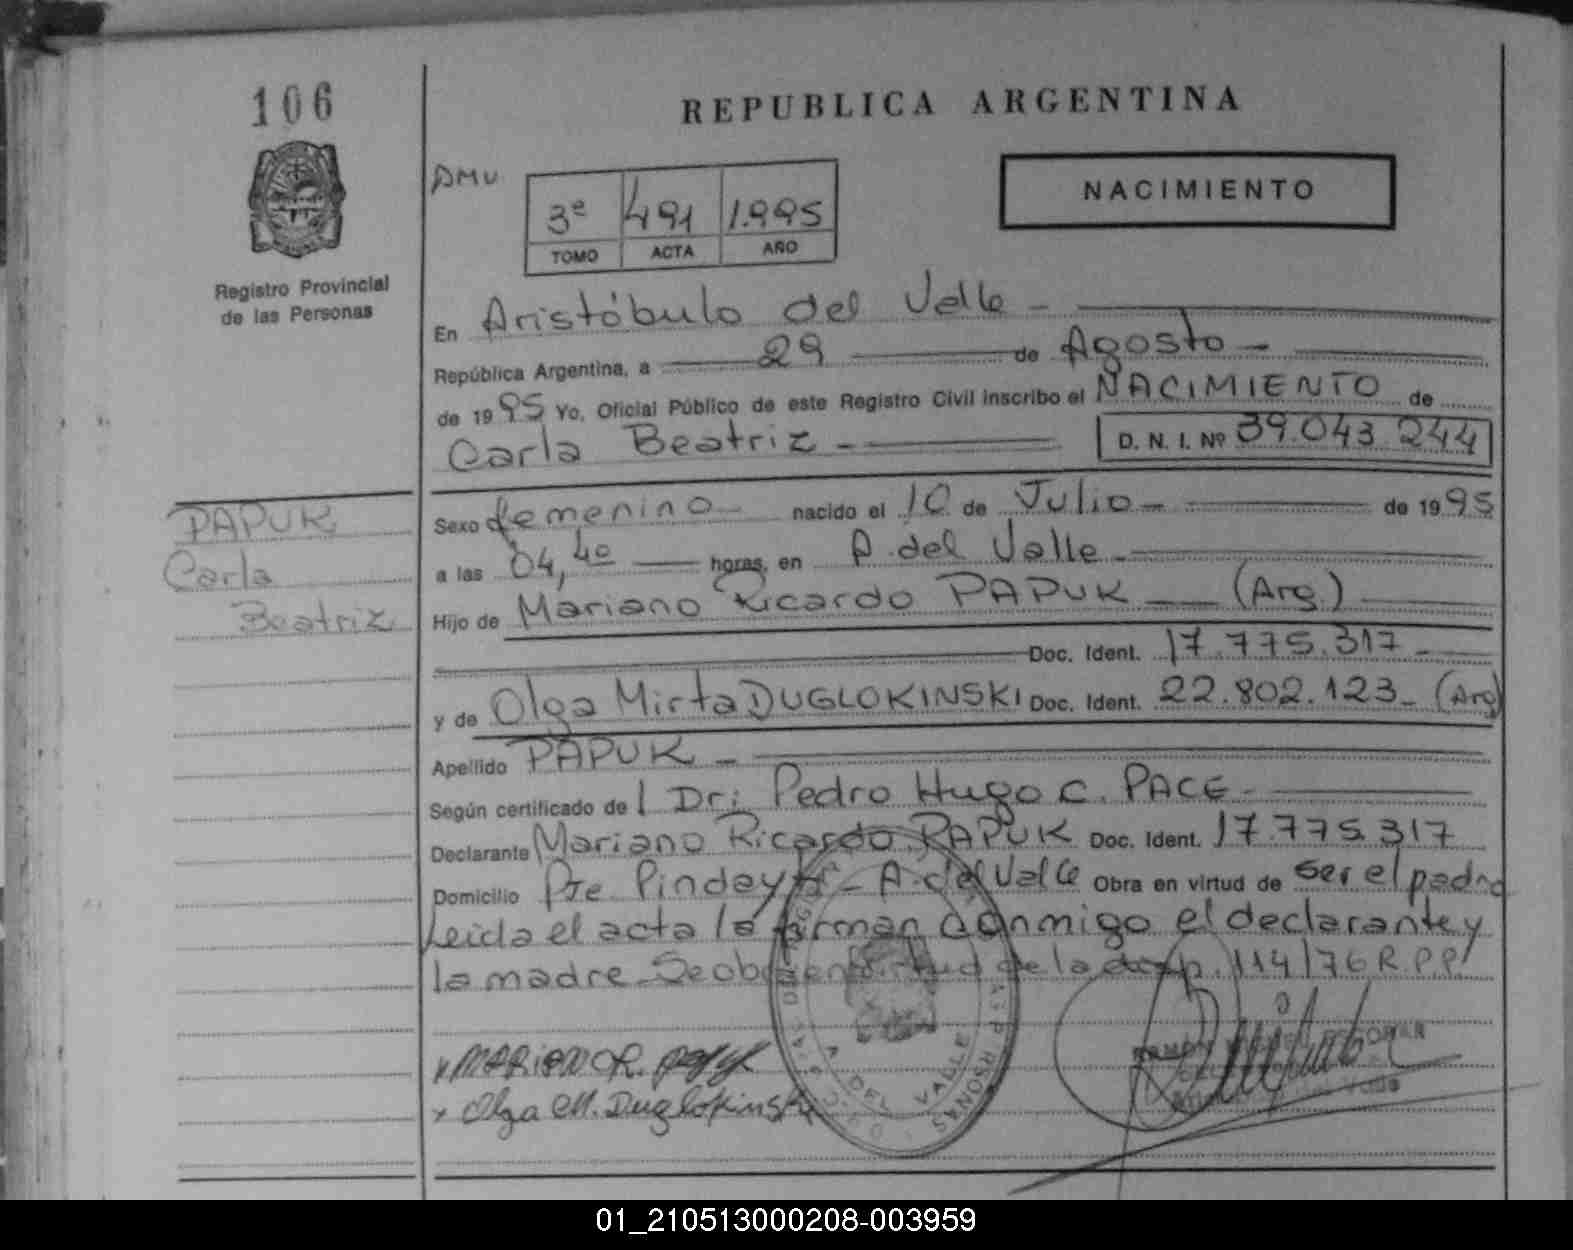 106
REPUBLICA ARGENTINA
Registro Provincial
de las Personas
AMU
3º 491 1.995
TOMO ACTA AÑO
NACIMIENTO
En Aristóbulo del Valle -
República Argentina, a 29 de Agosto -
de 1995 Yo, Oficial Público de este Registro Civil inscribo el NACIMIENTO de
Carla Beatriz - D. N. I. Nº 39.043.244
PAPUK
Carla
Beatriz
Sexo femenino nacido el 10 de Julio - de 1995
a las 04,40 horas, en A. del Valle -
Hijo de Mariano Ricardo PAPUK (Arg.)
Doc. Ident. 17.775.317 -
y de Olga Mirta DUGLOKINSKI Doc. Ident. 22.802.123 - (Arg)
Apellido PAPUK -
Según certificado de l Dr: Pedro Hugo C. PACE -
Declarante Mariano Ricardo PAPUK Doc. Ident. 17.775.317
Domicilio Pje. Pindayti - A. del Valle Obra en virtud de ser el padre
Leida el acta la firman conmigo el declarante y
la madre. Se obra en virtud de la disp. 114/76 R.P.P.
x MARIANO R. PAPUK
x Olga M. Duglokinski
A. DEL VALLE
01_210513000208-003959